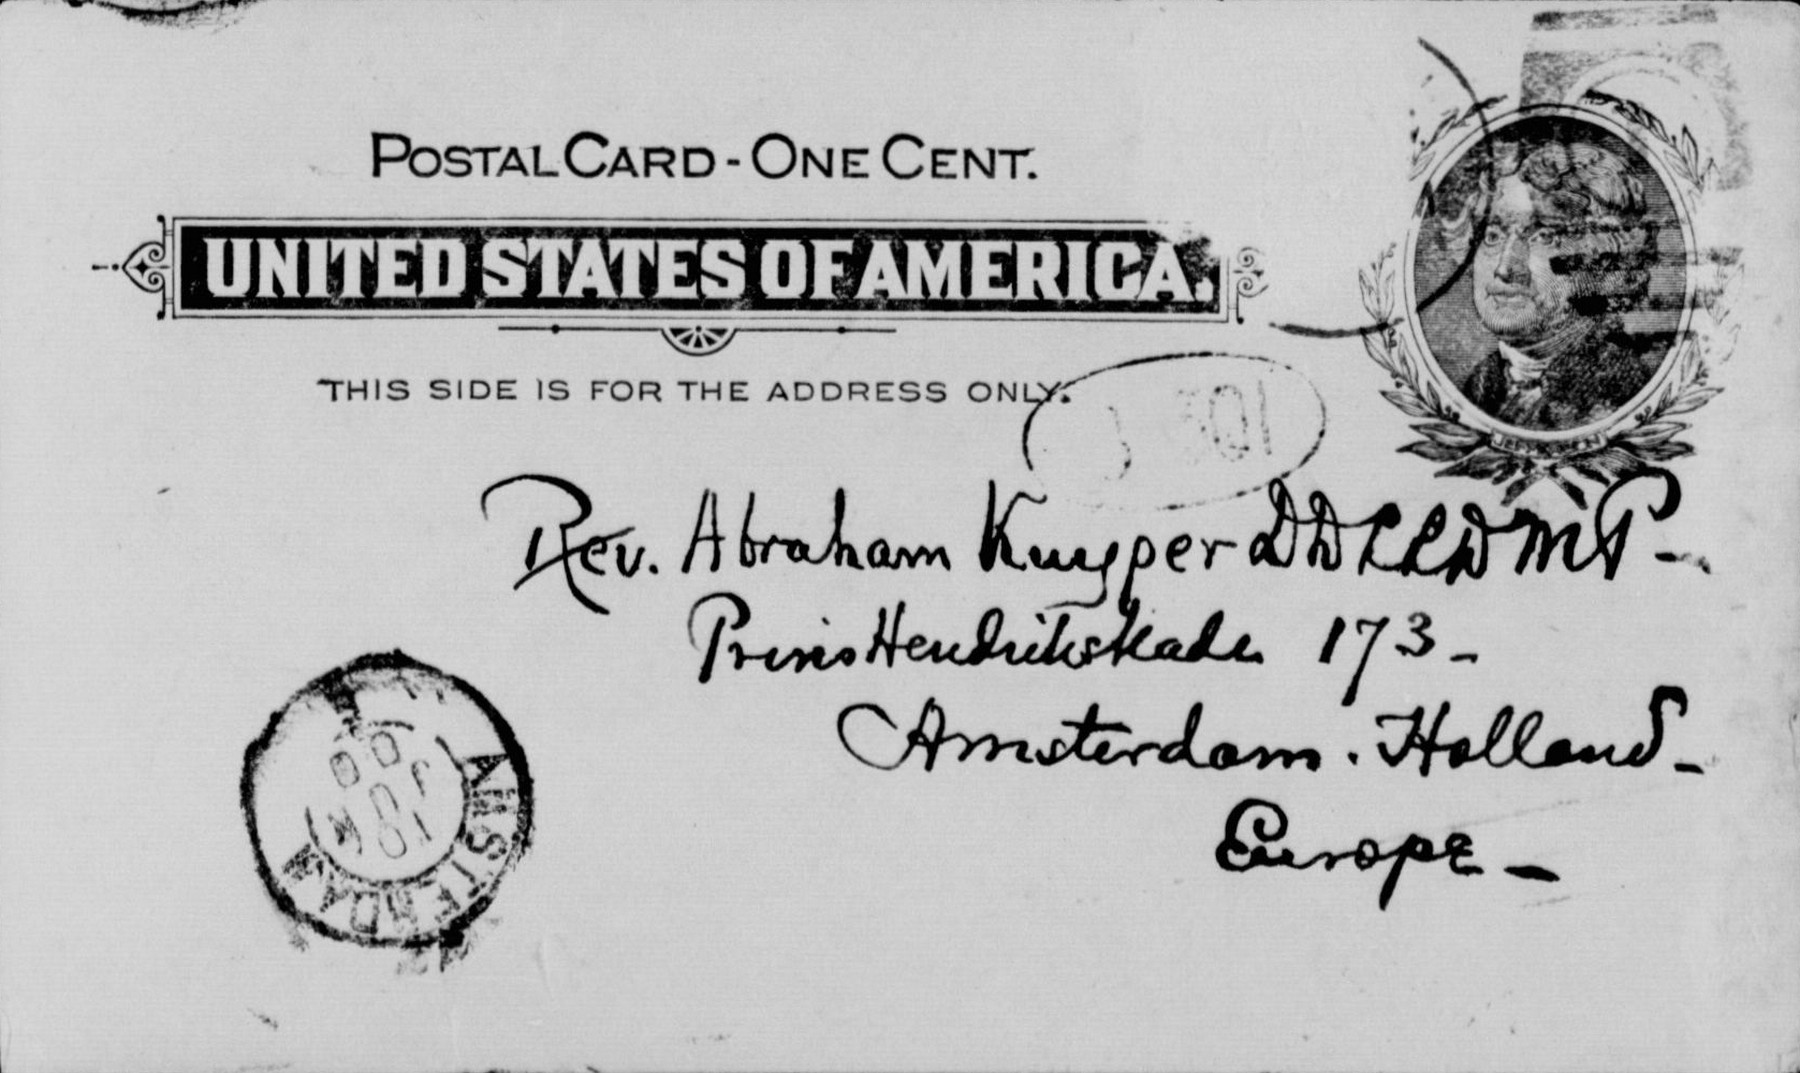 POSTAL CARD - ONE CENT.
UNITED STATES OF AMERICA.
THIS SIDE IS FOR THE ADDRESS ONLY.
Rev. Abraham Kuyper DD LLD MP -
Prins Hendrikskade 173 -
Amsterdam. Holland -
Europe -
AMSTERDAM